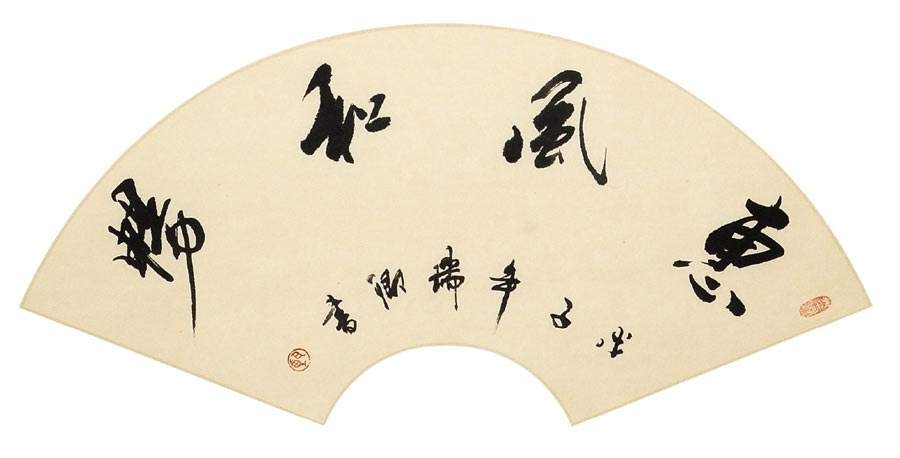 惠風和暢
子年瑞卿書